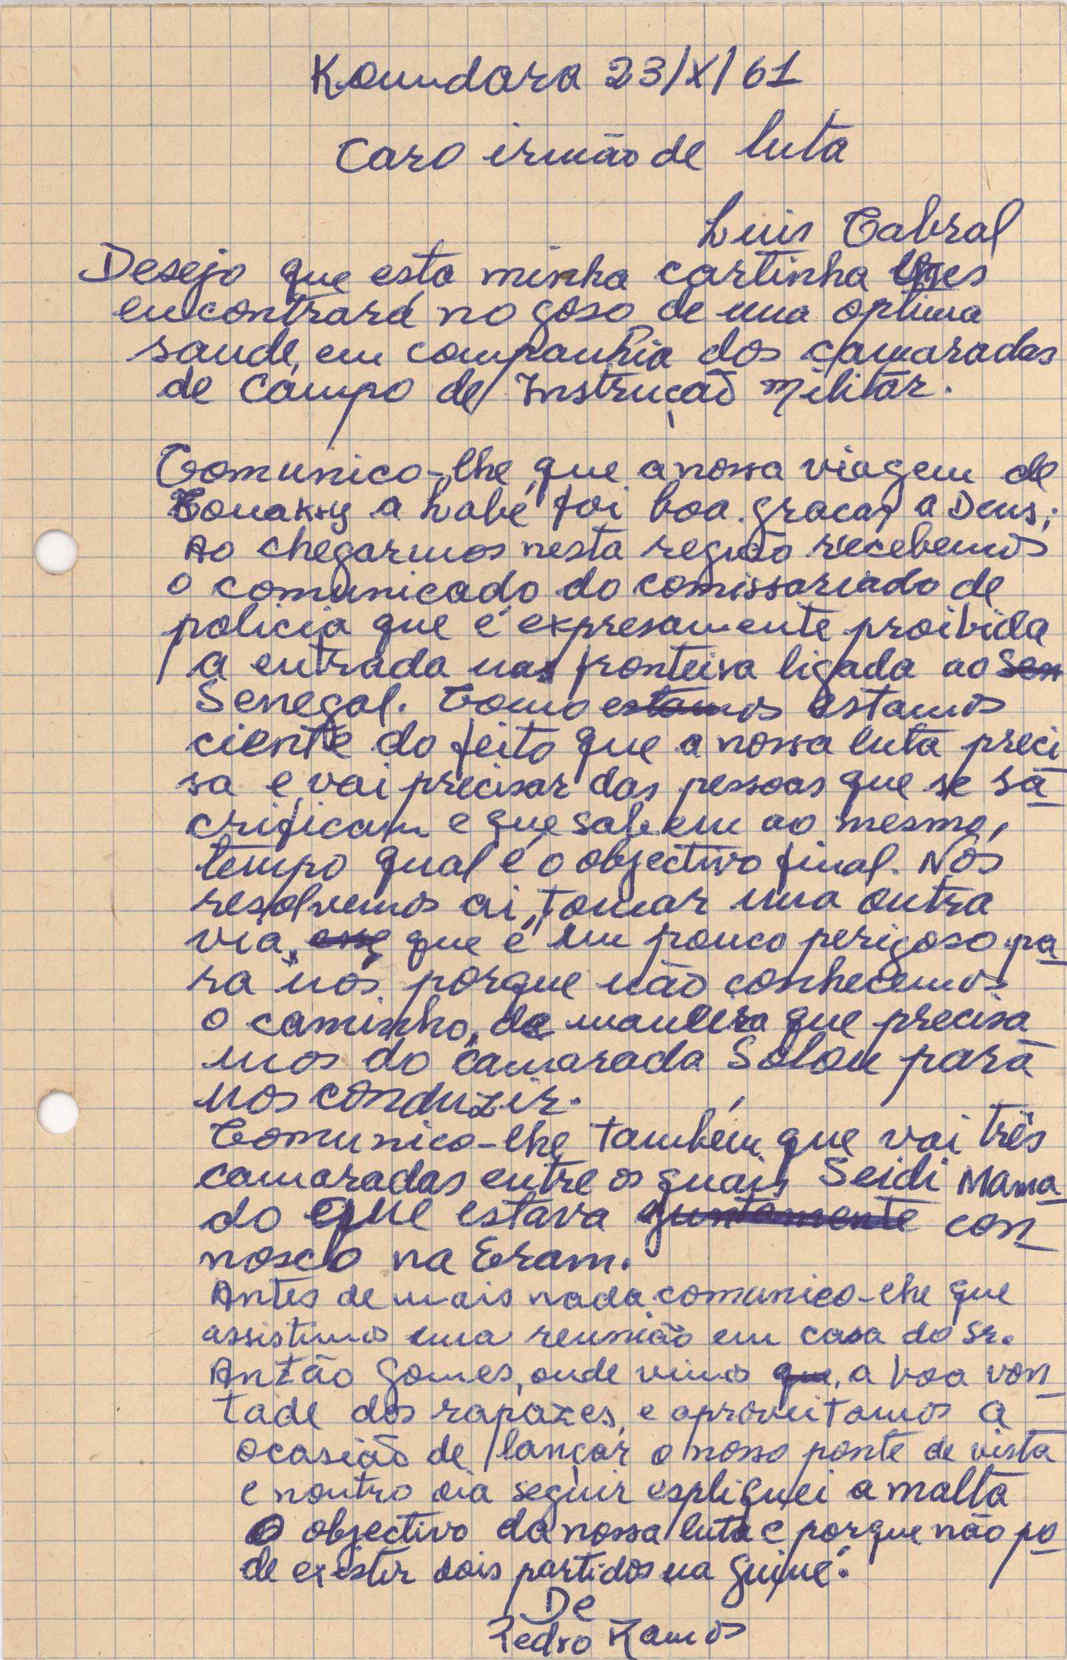 Koundara 23/X/61
Caro irmão de luta
Luis Cabral
Desejo que esta minha cartinha lhes
encontrará no goso de uma optima
saude, em companhia dos camaradas
de Campo de Instrução Militar.
Comunico-lhe, que a nossa viagem de
Conakry a Labé foi boa graças a Deus;
Ao chegarmos nesta região recebemos
o comunicado do comissariado de
policia que é expresamente proibida
a entrada nas fronteira ligada ao Sen
Senegal. Como estamos estamos
ciente do feito que a nossa luta preci
sa e vai precisar das pessoas que se sa-
crificam e que sabem ao mesmo,
tempo qual é o objectivo final. Nós
resolvemos ai, tomar uma outra
via, que é um pouco perigoso pa-
ra nós porque não conhecemos
o caminho, de maneira que precisa
mos do camarada Solou para
nos conduzir.
Comunico-lhe também que vai três
camaradas entre os quais Seidi Mama-
do que estava juntamente con-
nosco na Gram.
Antes de mais nada comunico-lhe que
assistimos uma reunião em casa do Sr.
Antão Gomes, onde vimos que, a boa von-
tade dos rapazes, e aproveitamos a
ocasião de lançar o nosso ponte de vista
e noutro dia seguir expliquei a malta
O objectivo da nossa luta e porque não po-
de exister dois partidos na Guiné.
De
Pedro Ramos